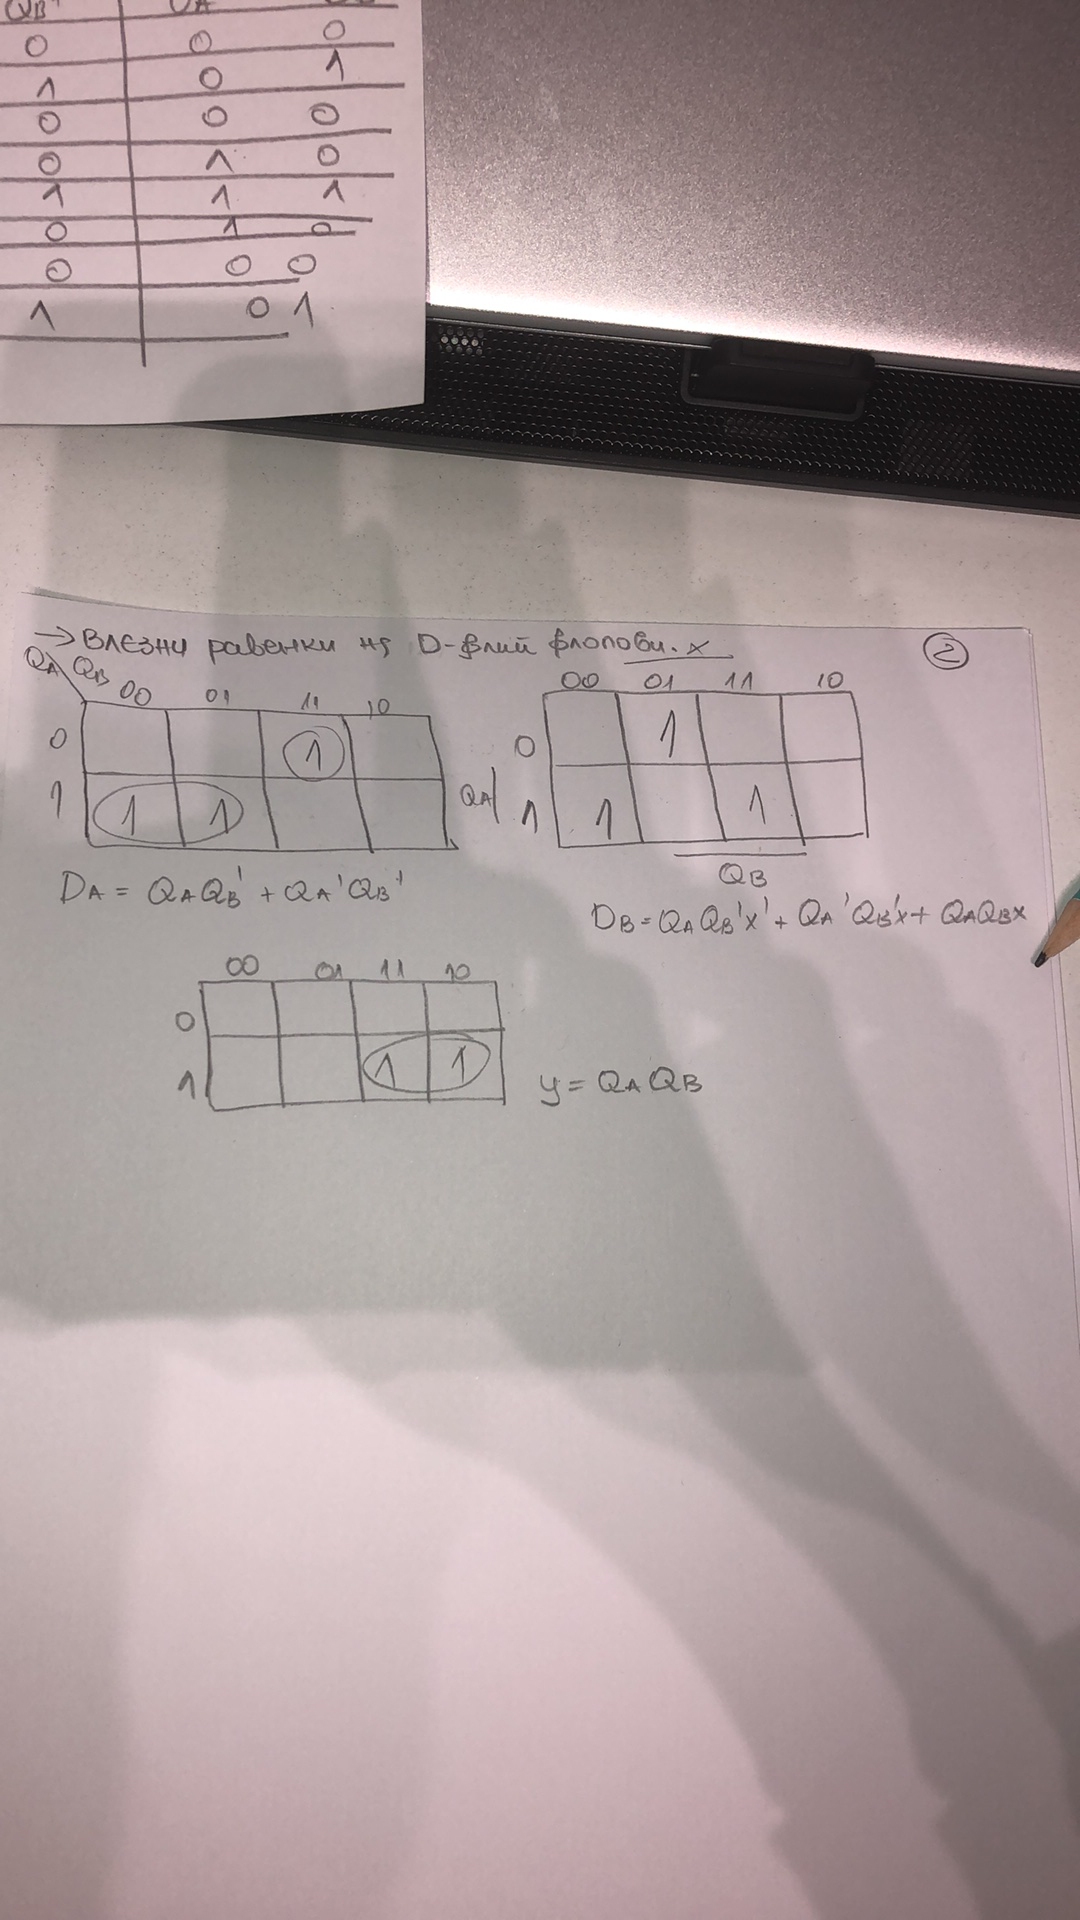 QB+ DA
0 0 0
1 0 1
0 0 0
0 1 0
1 1 1
0 1 0
0 0 0
1 0 1
→ Влезни равенки на D-флип флопови. x
②
QA QB 00 01 11 10
0 1
1 1 1
DA = QAQB' + QA'QB'
00 01 11 10
0 1
QA 1 1 1
QB
DB = QAQB'x' + QA'QB'x + QAQBx
00 01 11 10
0
1 1 1
y = QAQB